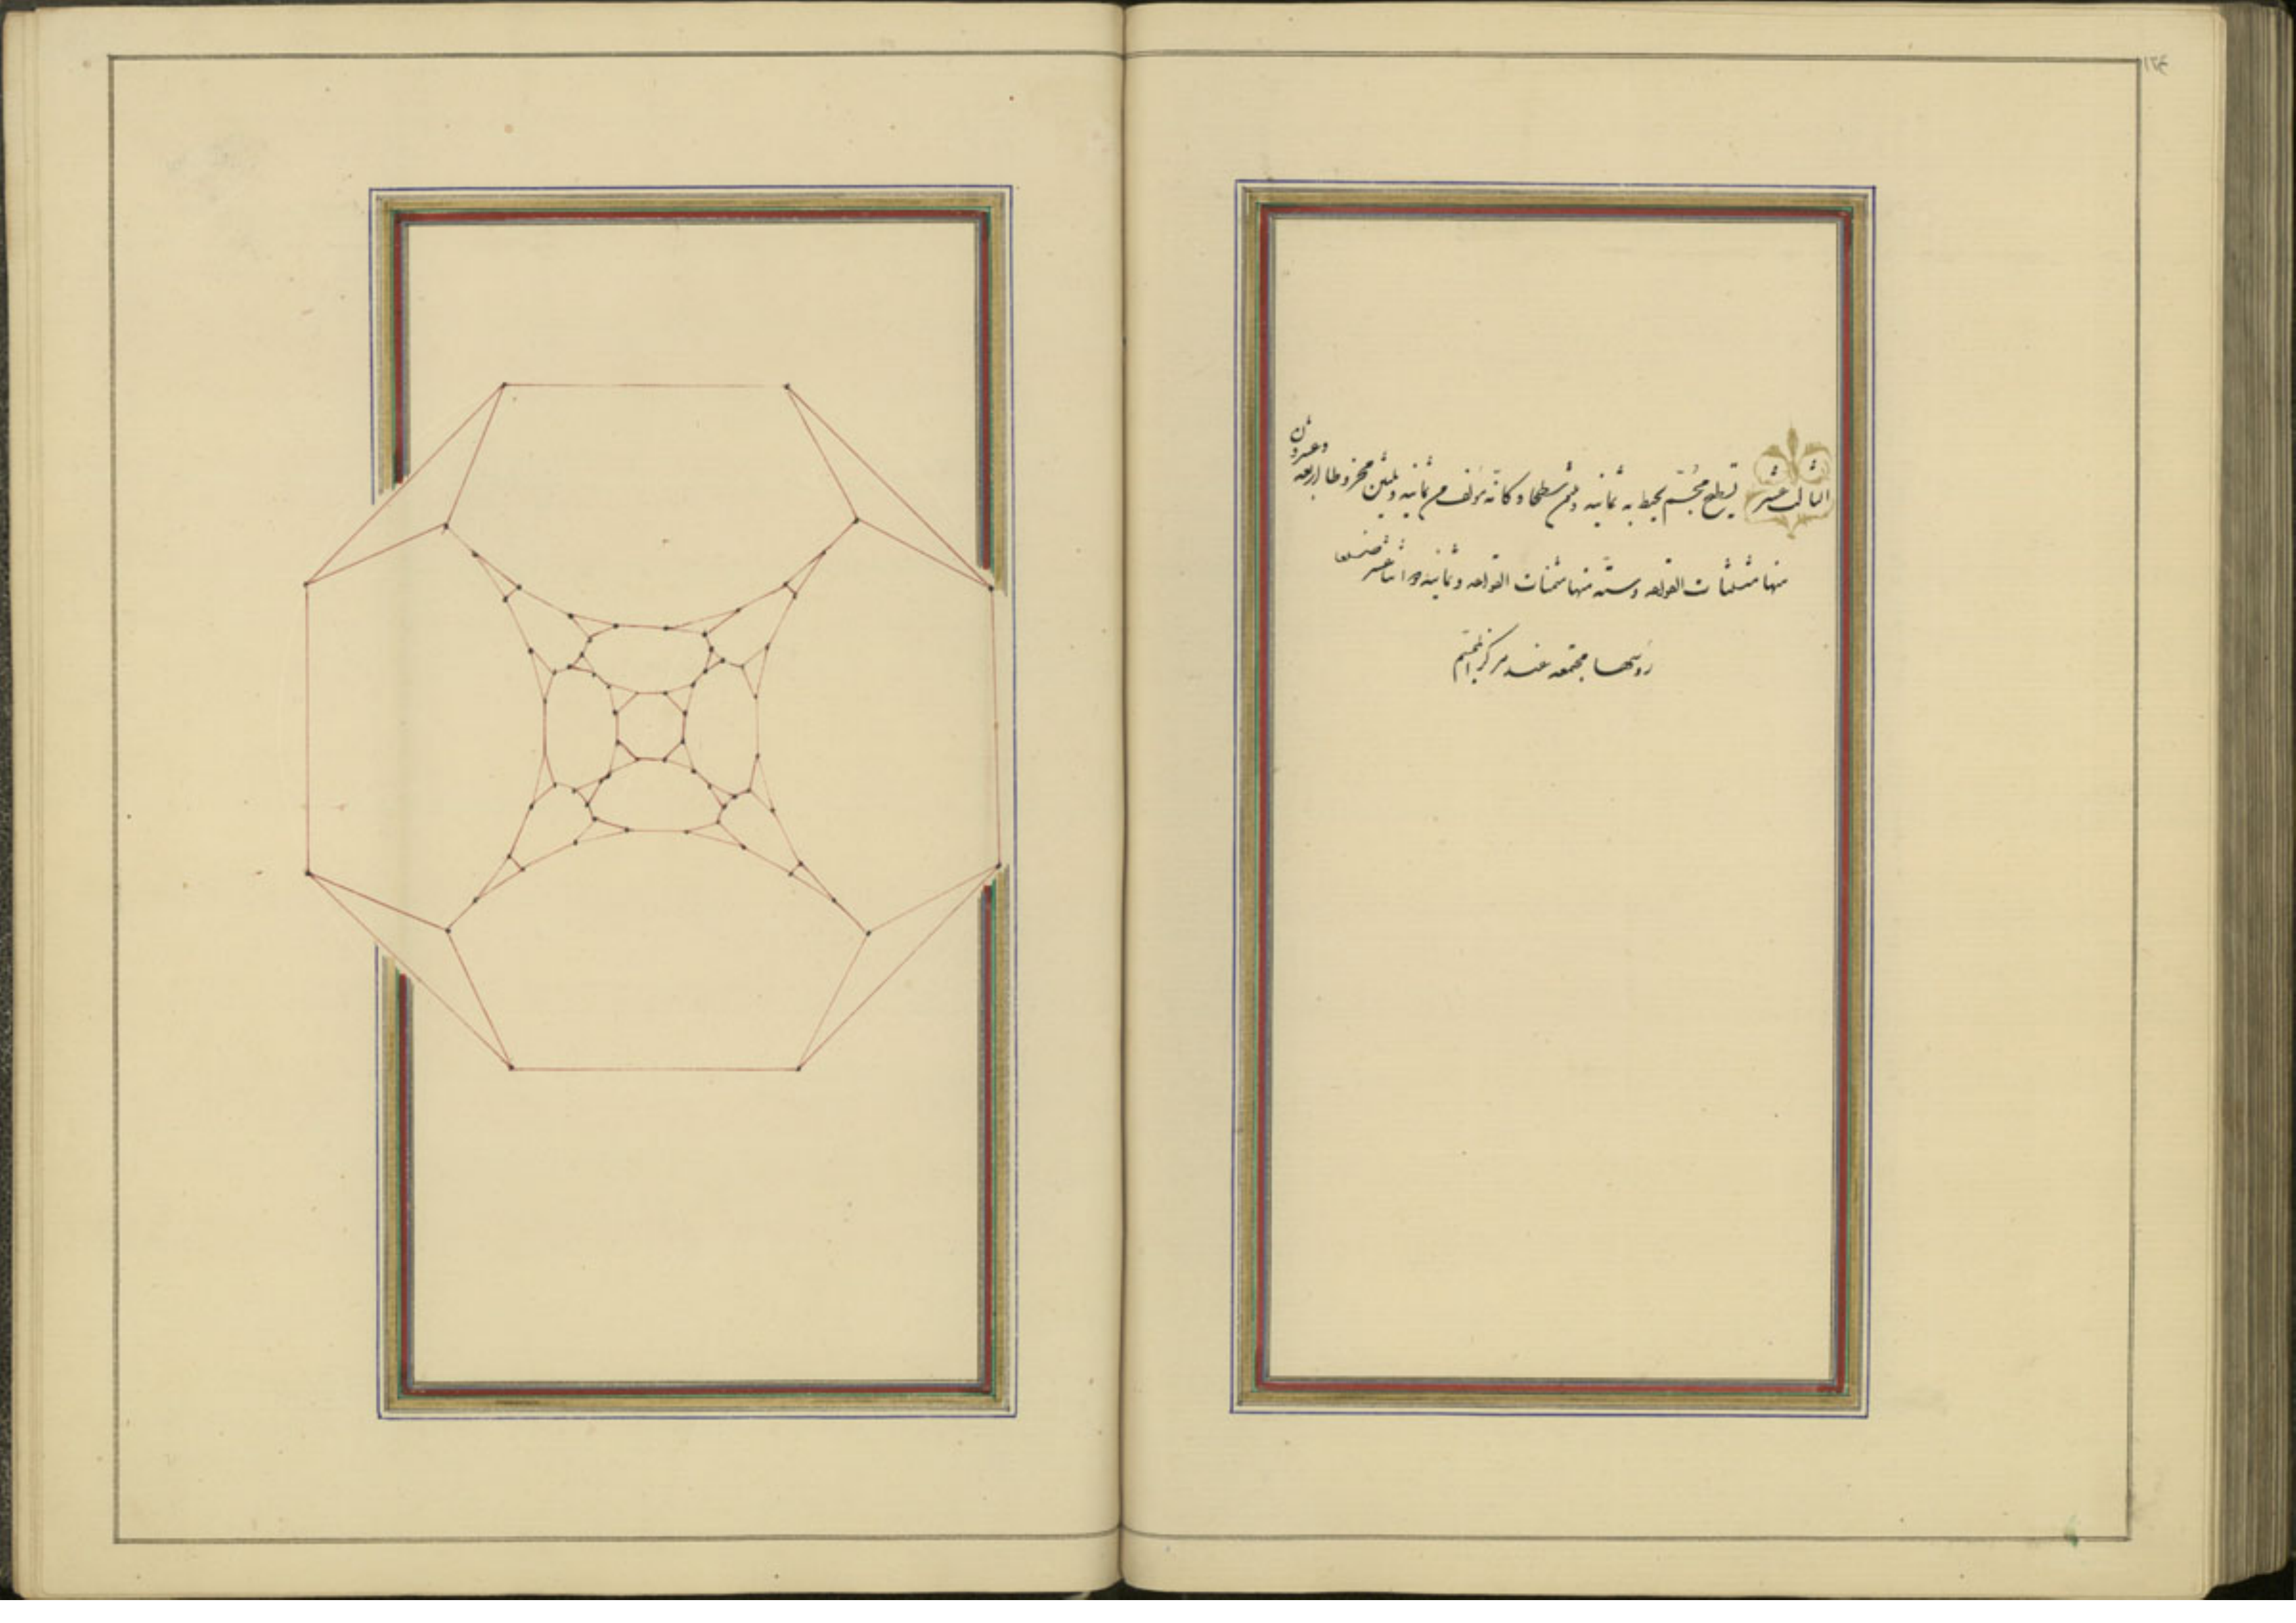 الثالث عشر تسطيح مجسّم يحيط به ثمانيه وثلثون سطحا وكانّه مؤلف من ثمانيه وثلثين مخروطا اربعه وعشرون
منها مثلثات القواعد وستّه منها مثمنات القواعد وثمانيه اثنا عشر ضلعا
رؤسها مجتمعه عند مركز المجسّم